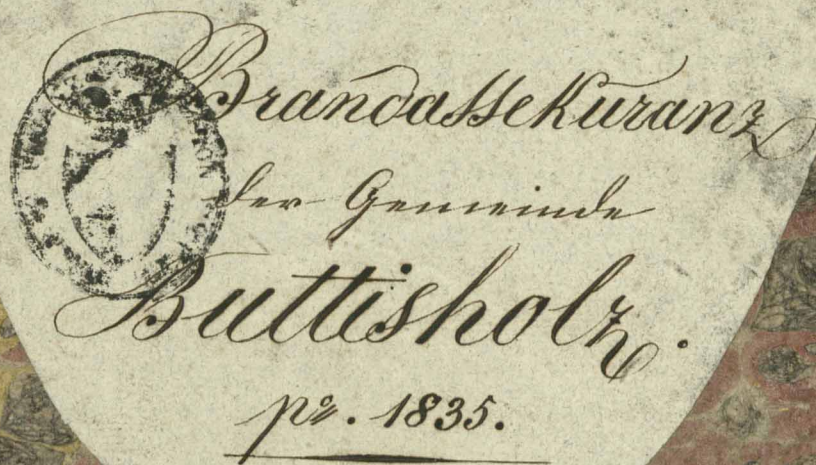 Brandassekuranz
der Gemeinde
Buttisholz.
pr. 1835.